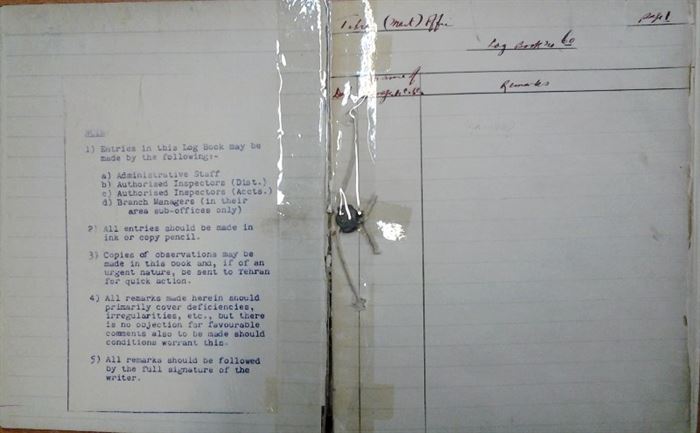 NOTE
1) Entries in this Log Book may be
made by the following:-
a) Administrative Staff
b) Authorised Inspectors (Dist.)
c) Authorised Inspectors (Accts.)
d) Branch Managers (in their
area sub-offices only)
2) All entries should be made in
ink or copy pencil.
3) Copies of observations may be
made in this book and, if of an
urgent nature, be sent to Tehran
for quick action.
4) All remarks made herein should
primarily cover deficiencies,
irregularities, etc., but there
is no objection for favourable
comments also to be made should
conditions warrant this.
5) All remarks should be followed
by the full signature of the
writer.
Page 1
Log Book No 60
Name of
Remarks